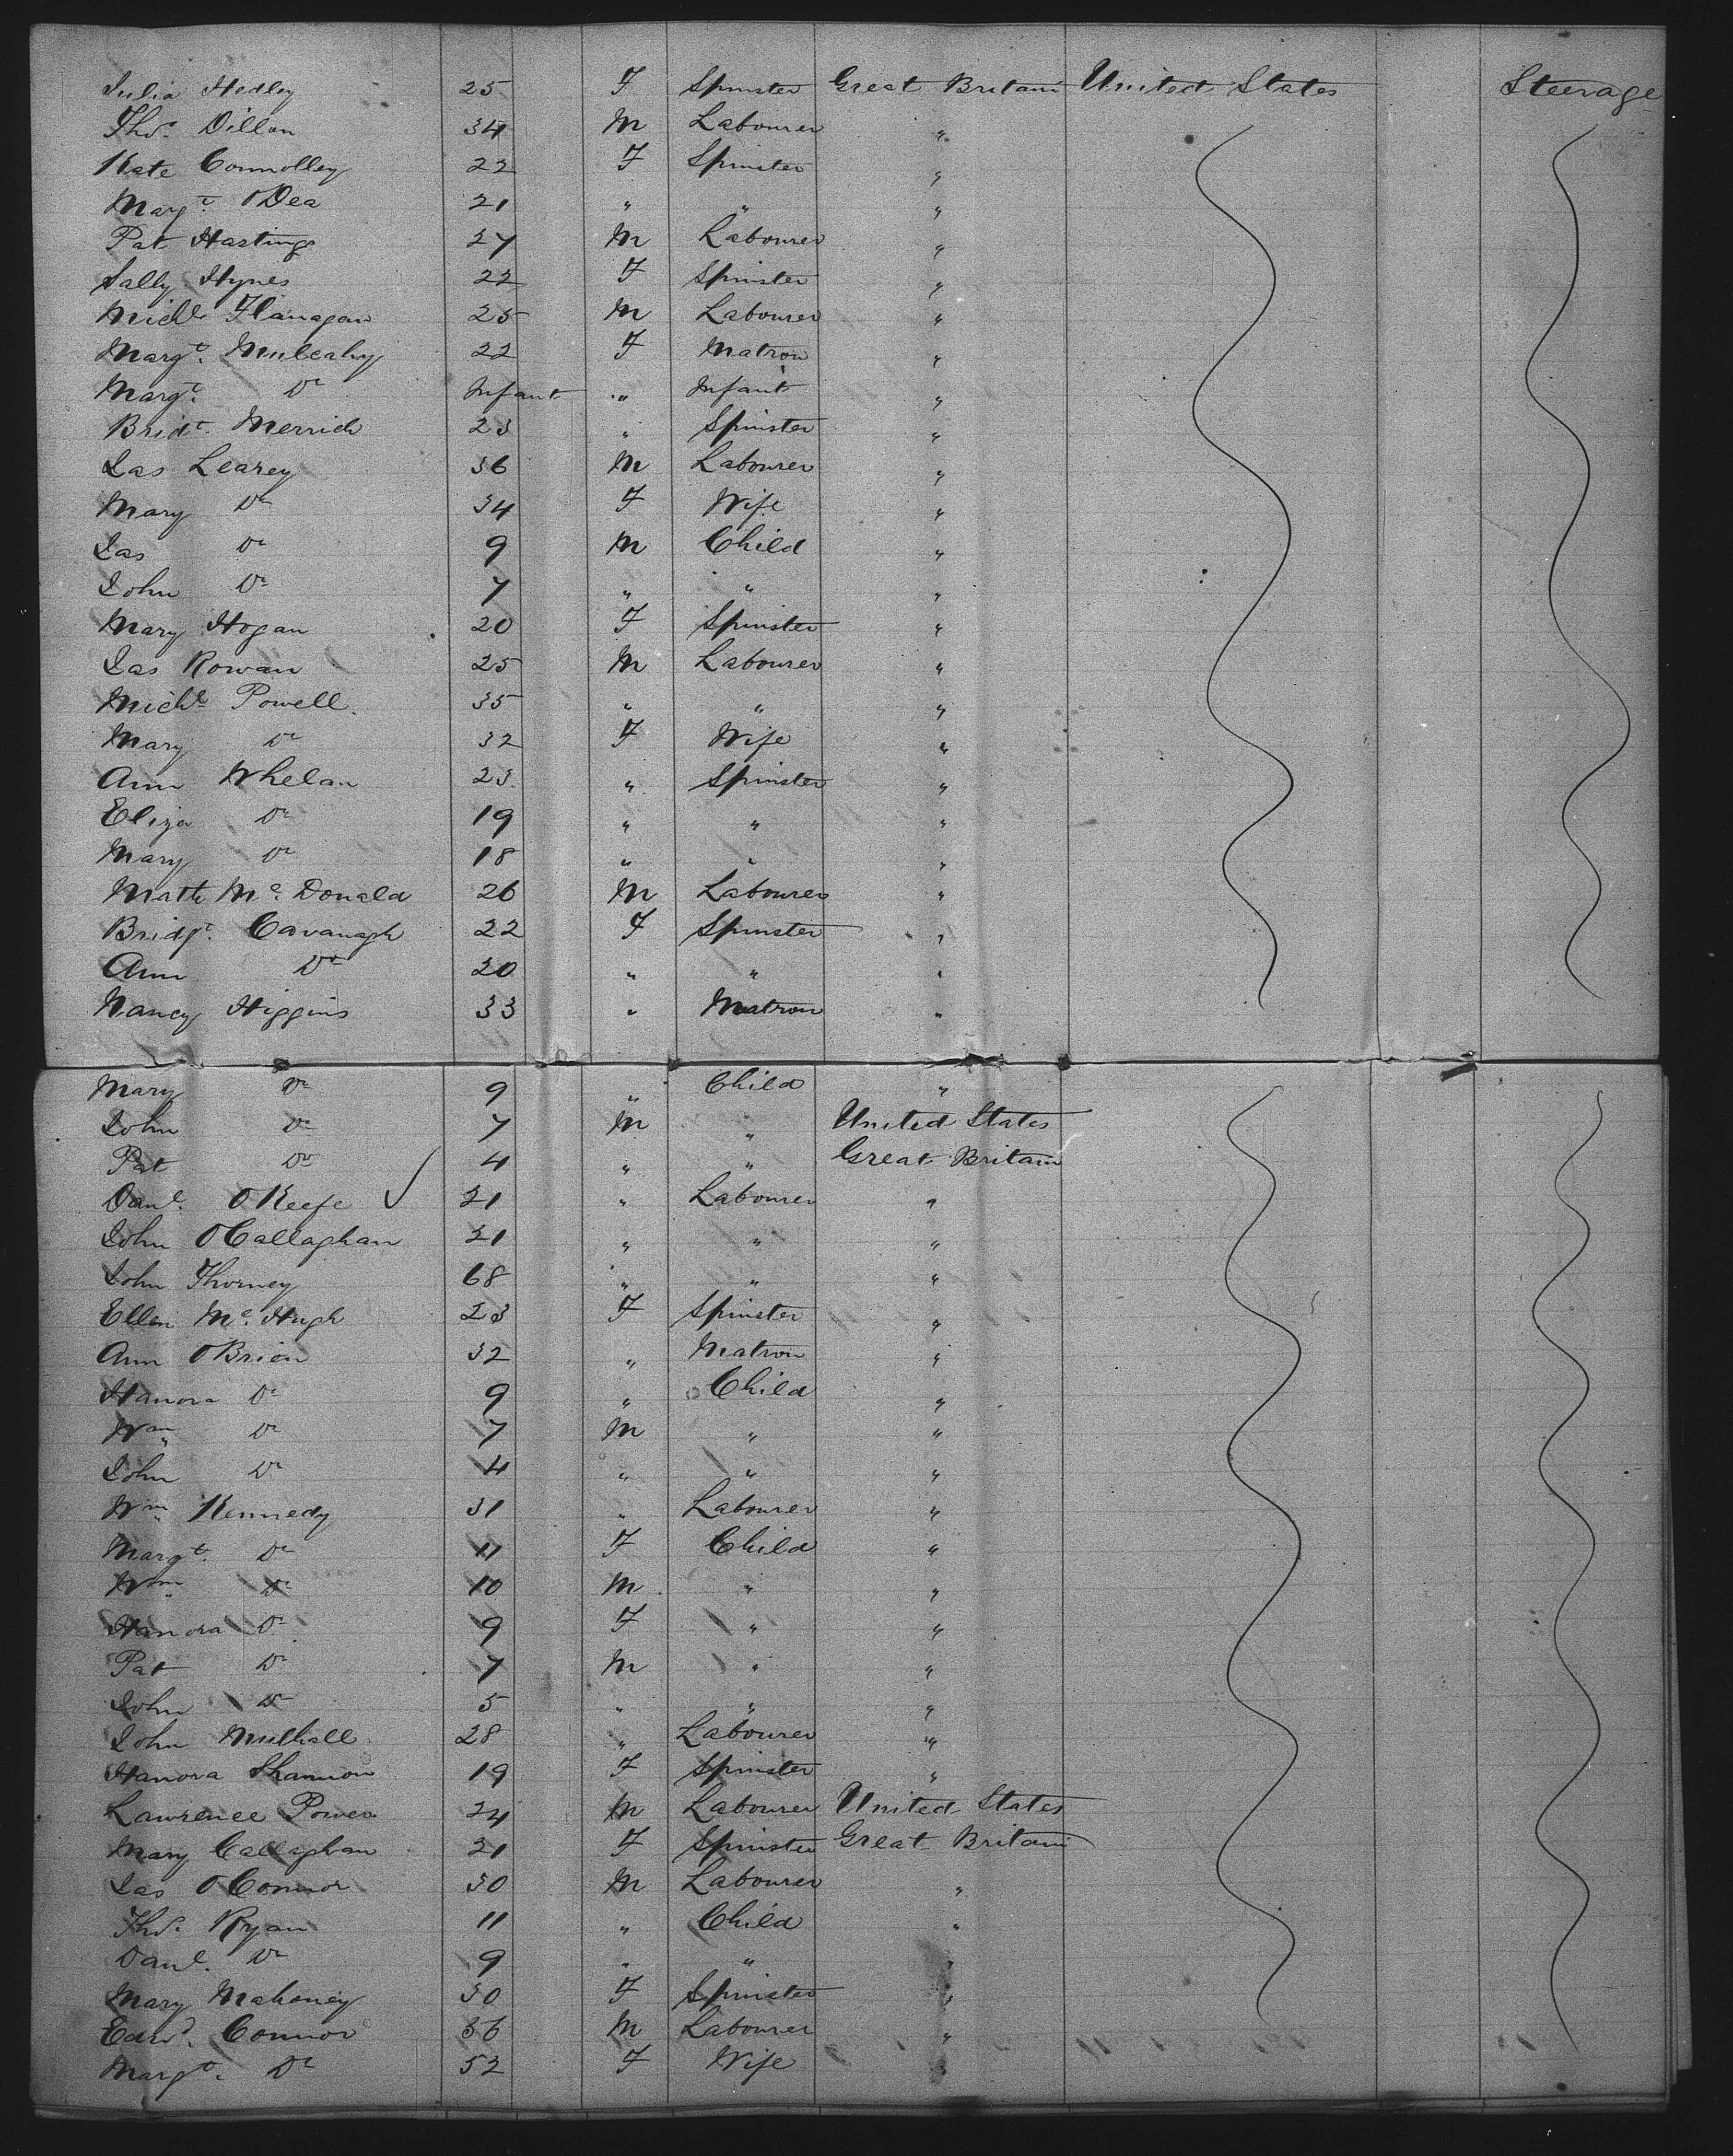 Julia Hedley 25 F Spinster Great Britain United States Steerage
Thos. Dillon 34 M Labourer "
Kate Connolley 22 F Spinster "
Margt. O'Dea 21 " " "
Pat Hastings 27 M Labourer "
Sally Hynes 22 F Spinster "
Michl Flanagan 25 M Labourer "
Margt. Mulcahy 22 F Matron "
Margt. Do Infant " Infant "
Bridt. Merrick 23 " Spinster "
Jas Learey 36 M Labourer "
Mary Do 34 F Wife "
Jas Do 9 M Child "
John Do 7 " " "
Mary Hogan 20 F Spinster "
Jas Rowan 25 M Labourer "
Michl Powell 35 " " "
Mary Do 32 F Wife "
Ann Whelan 23 " Spinster "
Eliza Do 19 " " "
Mary Do 18 " " "
Matth Mc Donald 26 M Labourer "
Bridgt. Cavanagh 22 F Spinster "
Ann Do 20 " " "
Nancy Higgins 33 " Matron "
Mary Do 9 " Child "
John Do 7 M " United States
Pat Do 4 " " Great Britain
Danl. O'Keefe 21 " Labourer "
John O'Callaghan 21 " " "
John Thorney 68 " " "
Ellen Mc Hugh 23 F Spinster "
Ann O'Brien 32 " Matron "
Hanora Do 9 " Child "
Wm Do 7 M " "
John Do 4 " " "
Wm Kennedy 31 " Labourer "
Margt. Do 11 F Child "
Wm Do 10 M " "
Hanora Do 9 F " "
Pat Do 7 M " "
John Do 5 " " "
John Mulhall 28 " Labourer "
Hanora Shannon 19 F Spinster "
Lawrence Power 24 M Labourer United States
Mary Callaghan 21 F Spinster Great Britain
Jas O'Connor 30 M Labourer "
Thos. Ryan 11 " Child "
Danl. Do 9 " " "
Mary Mahoney 30 F Spinster "
Edwd. Connor 36 M Labourer "
Margt. Do 52 F Wife "